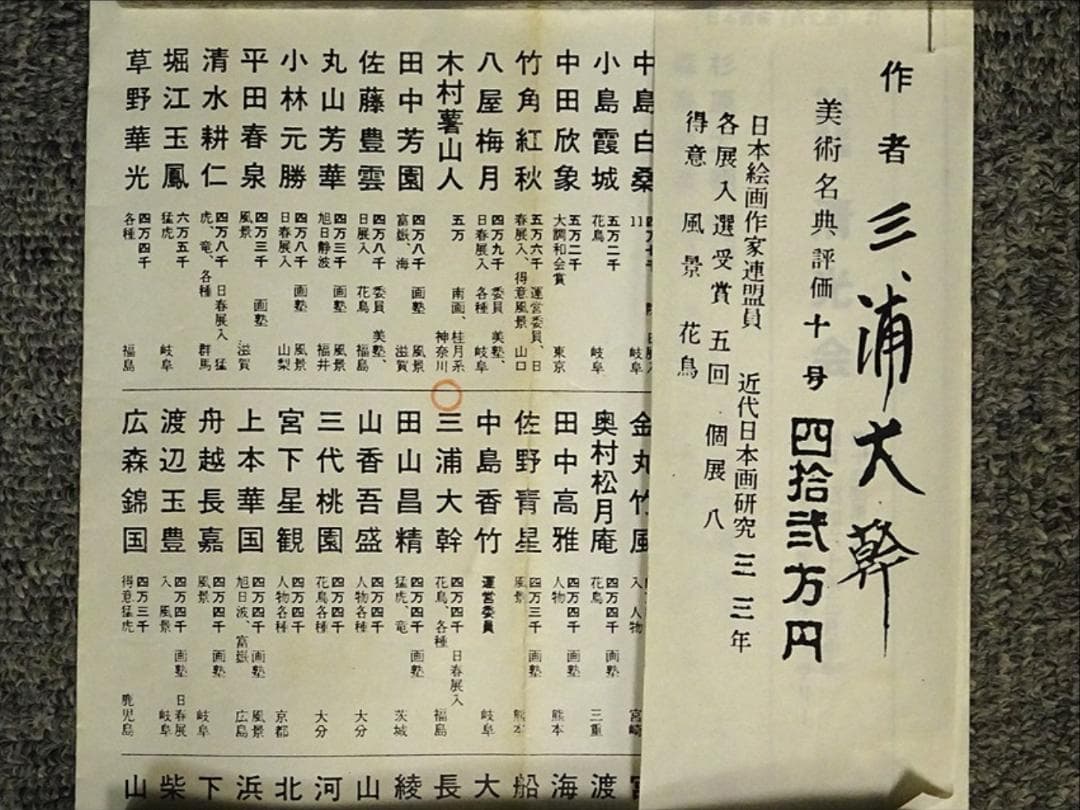 作者 三浦大幹
美術名典評価十号四拾弐万円
日本絵画作家連盟員 近代日本画研究三三年
各展入選受賞五回 個展八
得意 風景 花鳥
中島白桑
岐阜
小島霞城 五万二千 花鳥 岐阜
中田欣象 五万二千 大調和会賞 東京
竹角紅秋 五万六千 運営委員、日春展入、得意風景 山口
八屋梅月 四万九千 委員 美塾、日春展入 各種 岐阜
木村薯山人 五万 南画、桂月系 神奈川
田中芳園 四万八千 画塾 風景 富嶽、海 滋賀
佐藤豊雲 四万八千 委員 美塾、日展入 花鳥 福島
丸山芳華 四万三千 画塾 風景 旭日静波 福井
小林元勝 四万八千 画塾 風景 日春展入 山梨
平田春泉 四万三千 画塾 風景 滋賀
清水耕仁 四万八千 日春展入 猛虎、竜、各種 群馬
堀江玉鳳 六万五千 猛虎 岐阜
草野華光 四万四千 各種 福島
金丸竹風
入、人物 宮崎
奥村松月庵 四万四千 画塾 花鳥 三重
田中高雅 四万四千 画塾 人物 熊本
佐野青星 四万三千 画塾 風景 熊本
中島香竹 運営委員 岐阜
三浦大幹 四万四千 日春展入 花鳥、各種 福島
田山昌精 四万四千 画塾 猛虎、竜 茨城
山香吾盛 四万四千 人物各種 大分
三代桃園 四万四千 花鳥各種 大分
宮下星観 四万四千 人物各種 京都
上本華国 四万四千 画塾 風景 旭日波、富嶽 広島
舟越長嘉 四万四千 画塾 風景 岐阜
渡辺玉豊 四万四千 画塾 日春展入 風景 岐阜
広森錦国 四万三千 得意猛虎 鹿児島
渡
海
船
大
長
綾
山
河
北
浜
下
柴
山